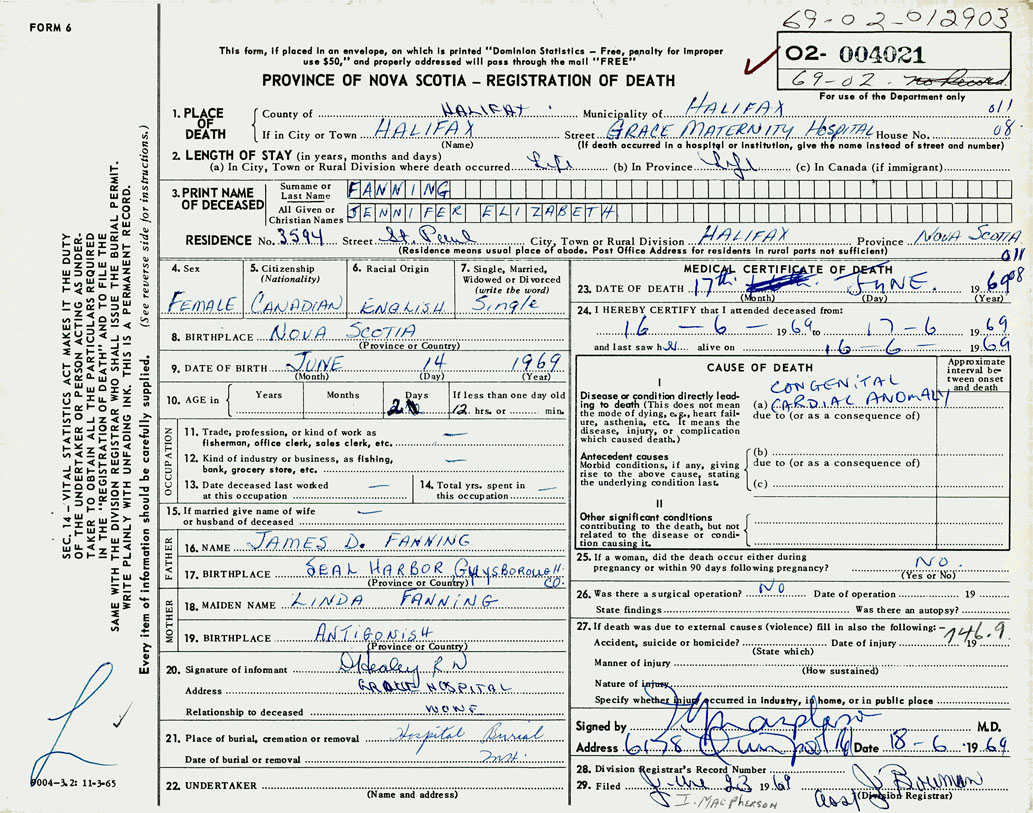 FORM 6
69-02-012903
This form, if placed in an envelope, on which is printed "Dominion Statistics – Free, penalty for improper
use $50," and properly addressed will pass through the mail "FREE"
02- 004021
PROVINCE OF NOVA SCOTIA – REGISTRATION OF DEATH
69-02- No Record
For use of the Department only
1. PLACE OF DEATH
County of HALIFAX Municipality of HALIFAX 011
If in City or Town HALIFAX Street GRACE MATERNITY HOSPITAL House No. 08
(Name) (If death occurred in a hospital or institution, give the name instead of street and number)
2. LENGTH OF STAY (in years, months and days)
(a) In City, Town or Rural Division where death occurred Life (b) In Province Life (c) In Canada (if immigrant)
3. PRINT NAME OF DECEASED
Surname or Last Name FANNING
All Given or Christian Names JENNIFER ELIZABETH
RESIDENCE No. 3594 Street St. Paul City, Town or Rural Division HALIFAX Province NOVA SCOTIA
(Residence means usual place of abode. Post Office Address for residents in rural parts not sufficient) 011
4. Sex FEMALE
5. Citizenship (Nationality) CANADIAN
6. Racial Origin ENGLISH
7. Single, Married, Widowed or Divorced (write the word) Single
8. BIRTHPLACE NOVA SCOTIA
(Province or Country)
9. DATE OF BIRTH JUNE 14 1969
(Month) (Day) (Year)
10. AGE in Years Months Days If less than one day old
2 12 hrs. or min.
OCCUPATION
11. Trade, profession, or kind of work as
fisherman, office clerk, sales clerk, etc. —
12. Kind of industry or business, as fishing,
bank, grocery store, etc. —
13. Date deceased last worked
at this occupation —
14. Total yrs. spent in
this occupation —
15. If married give name of wife
or husband of deceased —
FATHER
16. NAME JAMES D. FANNING
17. BIRTHPLACE SEAL HARBOR GUYSBOROUGH CO.
(Province or Country)
MOTHER
18. MAIDEN NAME LINDA FANNING
19. BIRTHPLACE ANTIGONISH
(Province or Country)
20. Signature of informant Healey RN
Address GRACE HOSPITAL
Relationship to deceased NONE
21. Place of burial, cremation or removal Hospital Burial
Date of burial or removal
22. UNDERTAKER
(Name and address)
MEDICAL CERTIFICATE OF DEATH
23. DATE OF DEATH 17th JUNE 1969 08
(Month) (Day) (Year)
24. I HEREBY CERTIFY that I attended deceased from:
16 – 6 – 1969 to 17 – 6 1969
and last saw her alive on 16 – 6 – 1969
CAUSE OF DEATH
Approximate interval between onset and death
I
Disease or condition directly leading to death (This does not mean the mode of dying, e.g., heart failure, asthenia, etc. It means the disease, injury, or complication which caused death.)
(a) CONGENITAL CARDIAL ANOMALY
due to (or as a consequence of)
Antecedent causes
Morbid conditions, if any, giving rise to the above cause, stating the underlying condition last.
(b)
due to (or as a consequence of)
(c)
II
Other significant conditions
contributing to the death, but not related to the disease or condition causing it.
25. If a woman, did the death occur either during
pregnancy or within 90 days following pregnancy? NO
(Yes or No)
26. Was there a surgical operation? NO Date of operation 19
State findings Was there an autopsy?
27. If death was due to external causes (violence) fill in also the following:– 746.9
Accident, suicide or homicide? Date of injury 19
(State which)
Manner of injury
(How sustained)
Nature of injury
Specify whether injury occurred in industry, in home, or in public place
Signed by M.D.
Address 6178 Date 18-6 1969
28. Division Registrar's Record Number
29. Filed June 23 1969 Asst J Bowman
(Division Registrar)
I. MACPHERSON
SEC. 14 – VITAL STATISTICS ACT MAKES IT THE DUTY
OF THE UNDERTAKER OR PERSON ACTING AS UNDER-
TAKER TO OBTAIN ALL THE PARTICULARS REQUIRED
IN THE "REGISTRATION OF DEATH" AND TO FILE THE
SAME WITH THE DIVISION REGISTRAR WHO SHALL ISSUE THE BURIAL PERMIT.
WRITE PLAINLY WITH UNFADING INK. THIS IS A PERMANENT RECORD.
Every item of information should be carefully supplied. (See reverse side for instructions.)
9004-3.2: 11-3-65